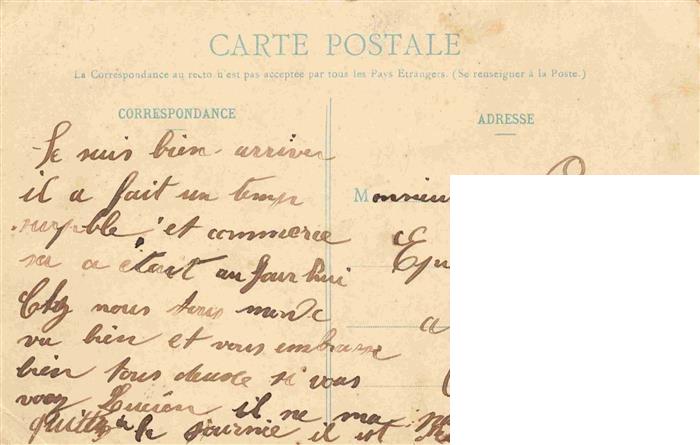 CARTE POSTALE
La Correspondance au recto n'est pas acceptée par tous les Pays Etrangers. (Se renseigner à la Poste.)
CORRESPONDANCE
Je suis bien arriver
il a fait un temp
et commerce
sa a était au jour hui
Chez nous tous monde
va bien et vous embrasse
bien tous deuse si vous
voay Lucien il ne ma
quittez de la journée il est
ADRESSE
Monsieur
a